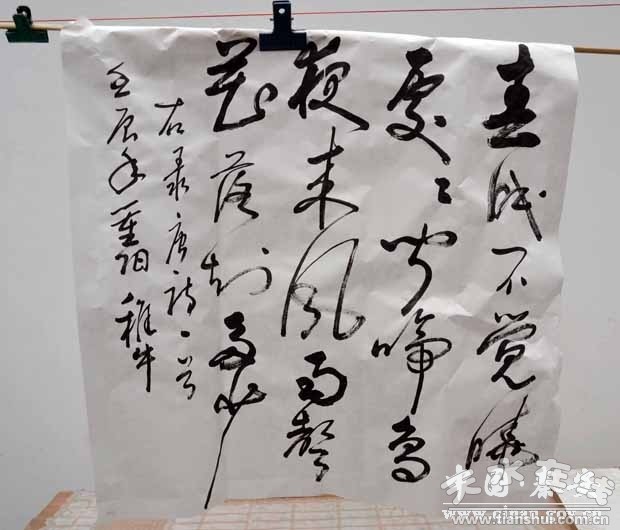 春眠不觉晓
处々闻啼鸟
夜来风雨聲
花落知多少
右录唐诗一首
壬辰年重阳 稚牛
天水在线
www.qinan.gov.cn
www.tianshui.com.cn